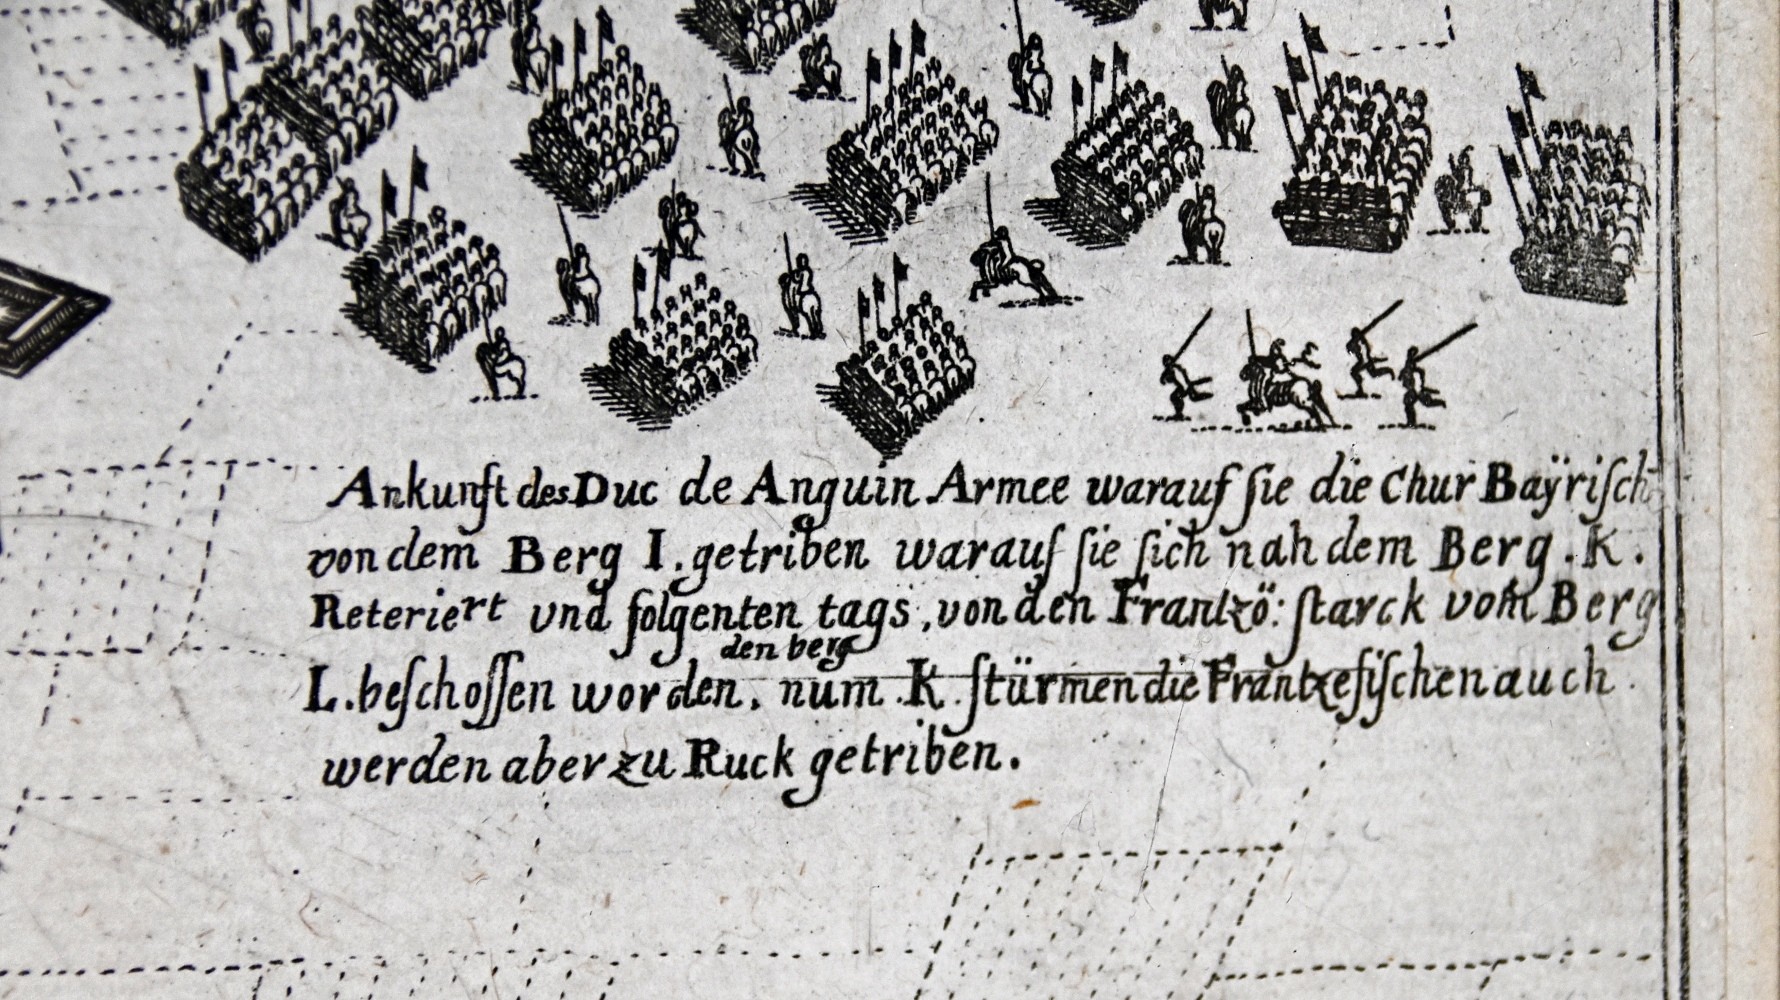 Ankunft des Duc de Anguin Armee warauf ſie die Chur Baÿriſch
von dem Berg I. getriben warauf ſie ſich nah dem Berg. K.
Reteriert vnd folgenten tags, von den Frantzö: ſtarck vom Berg
den berg
L. beſchoſſen worden, num K. ſtürmen die Frantzeſiſchen auch
werden aber zu Ruck getriben.